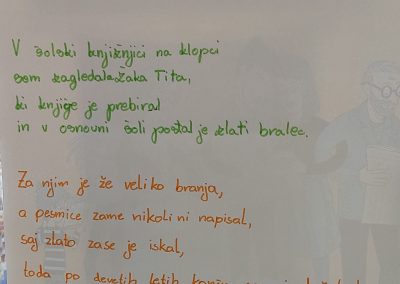 V šolski knjižnjici na klopci
sem zagledala Žaka Tita,
ki knjige je prebiral
in v osnovni šoli postal je zlati bralec.
Za njim je že veliko branja,
a pesmice zame nikoli ni napisal,
saj zlato zase je iskal,
toda po devetih letih